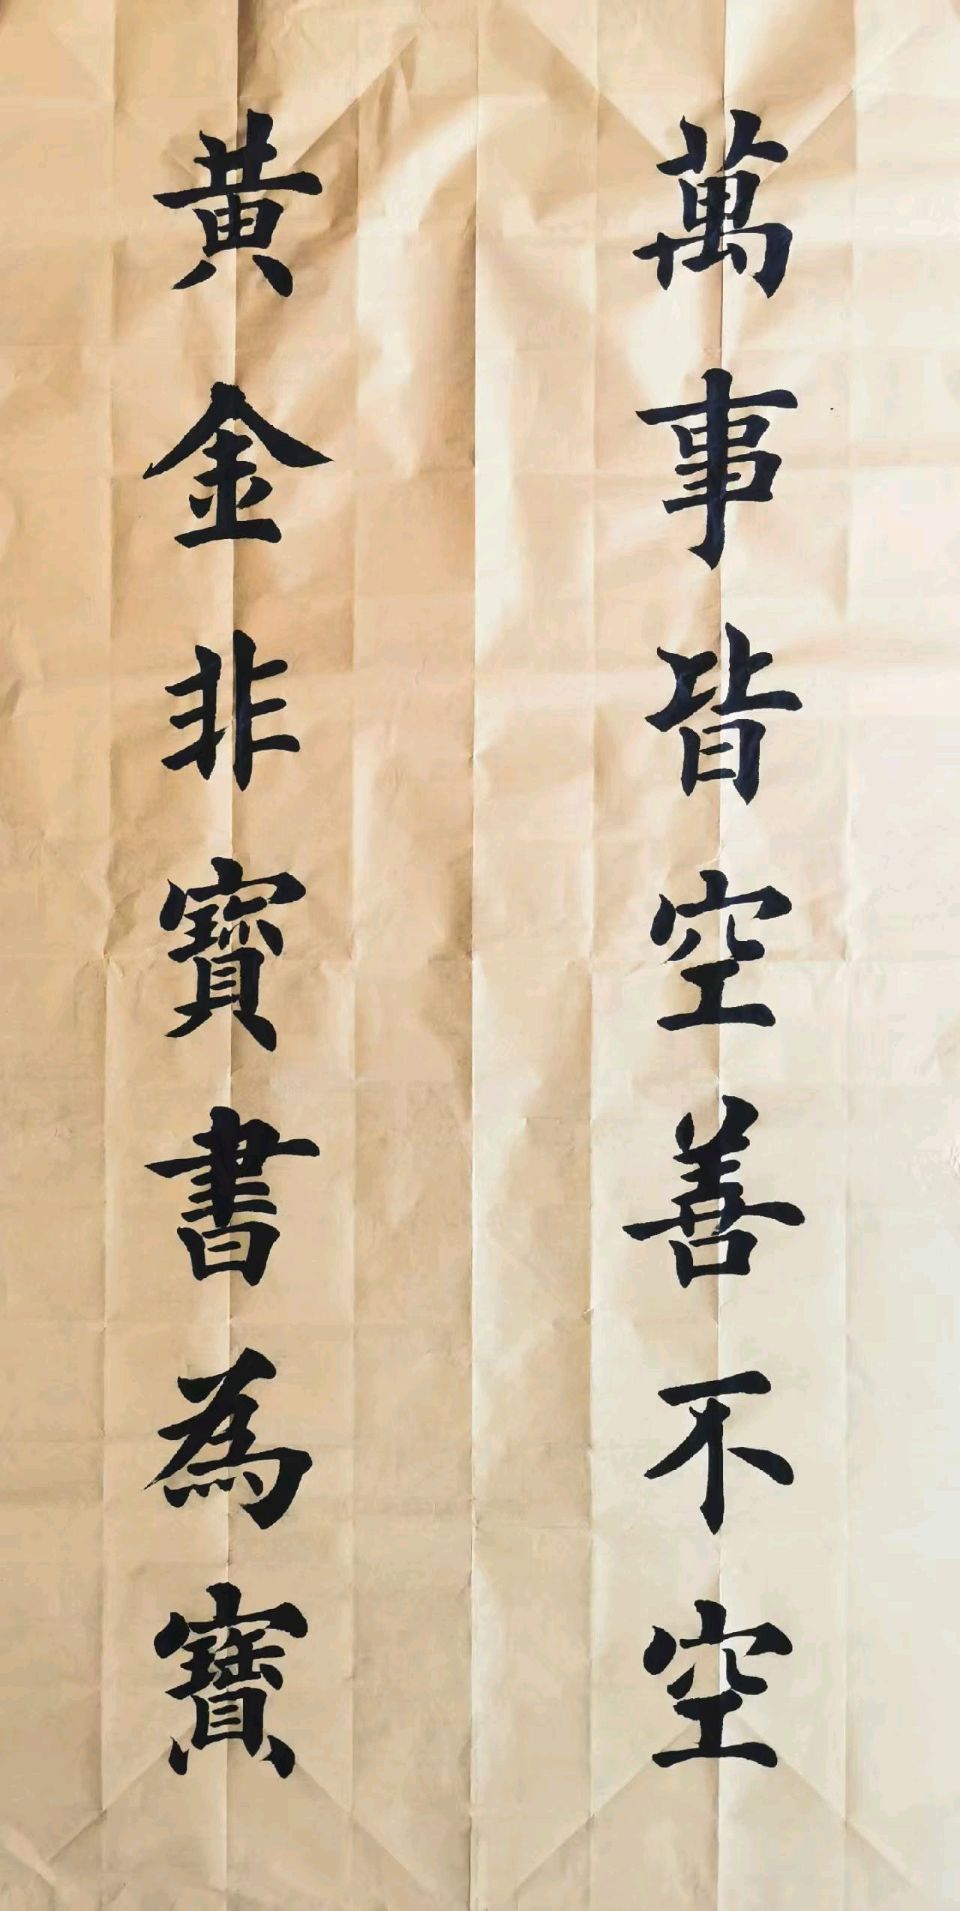 萬事皆空善不空
黃金非寶書為寶